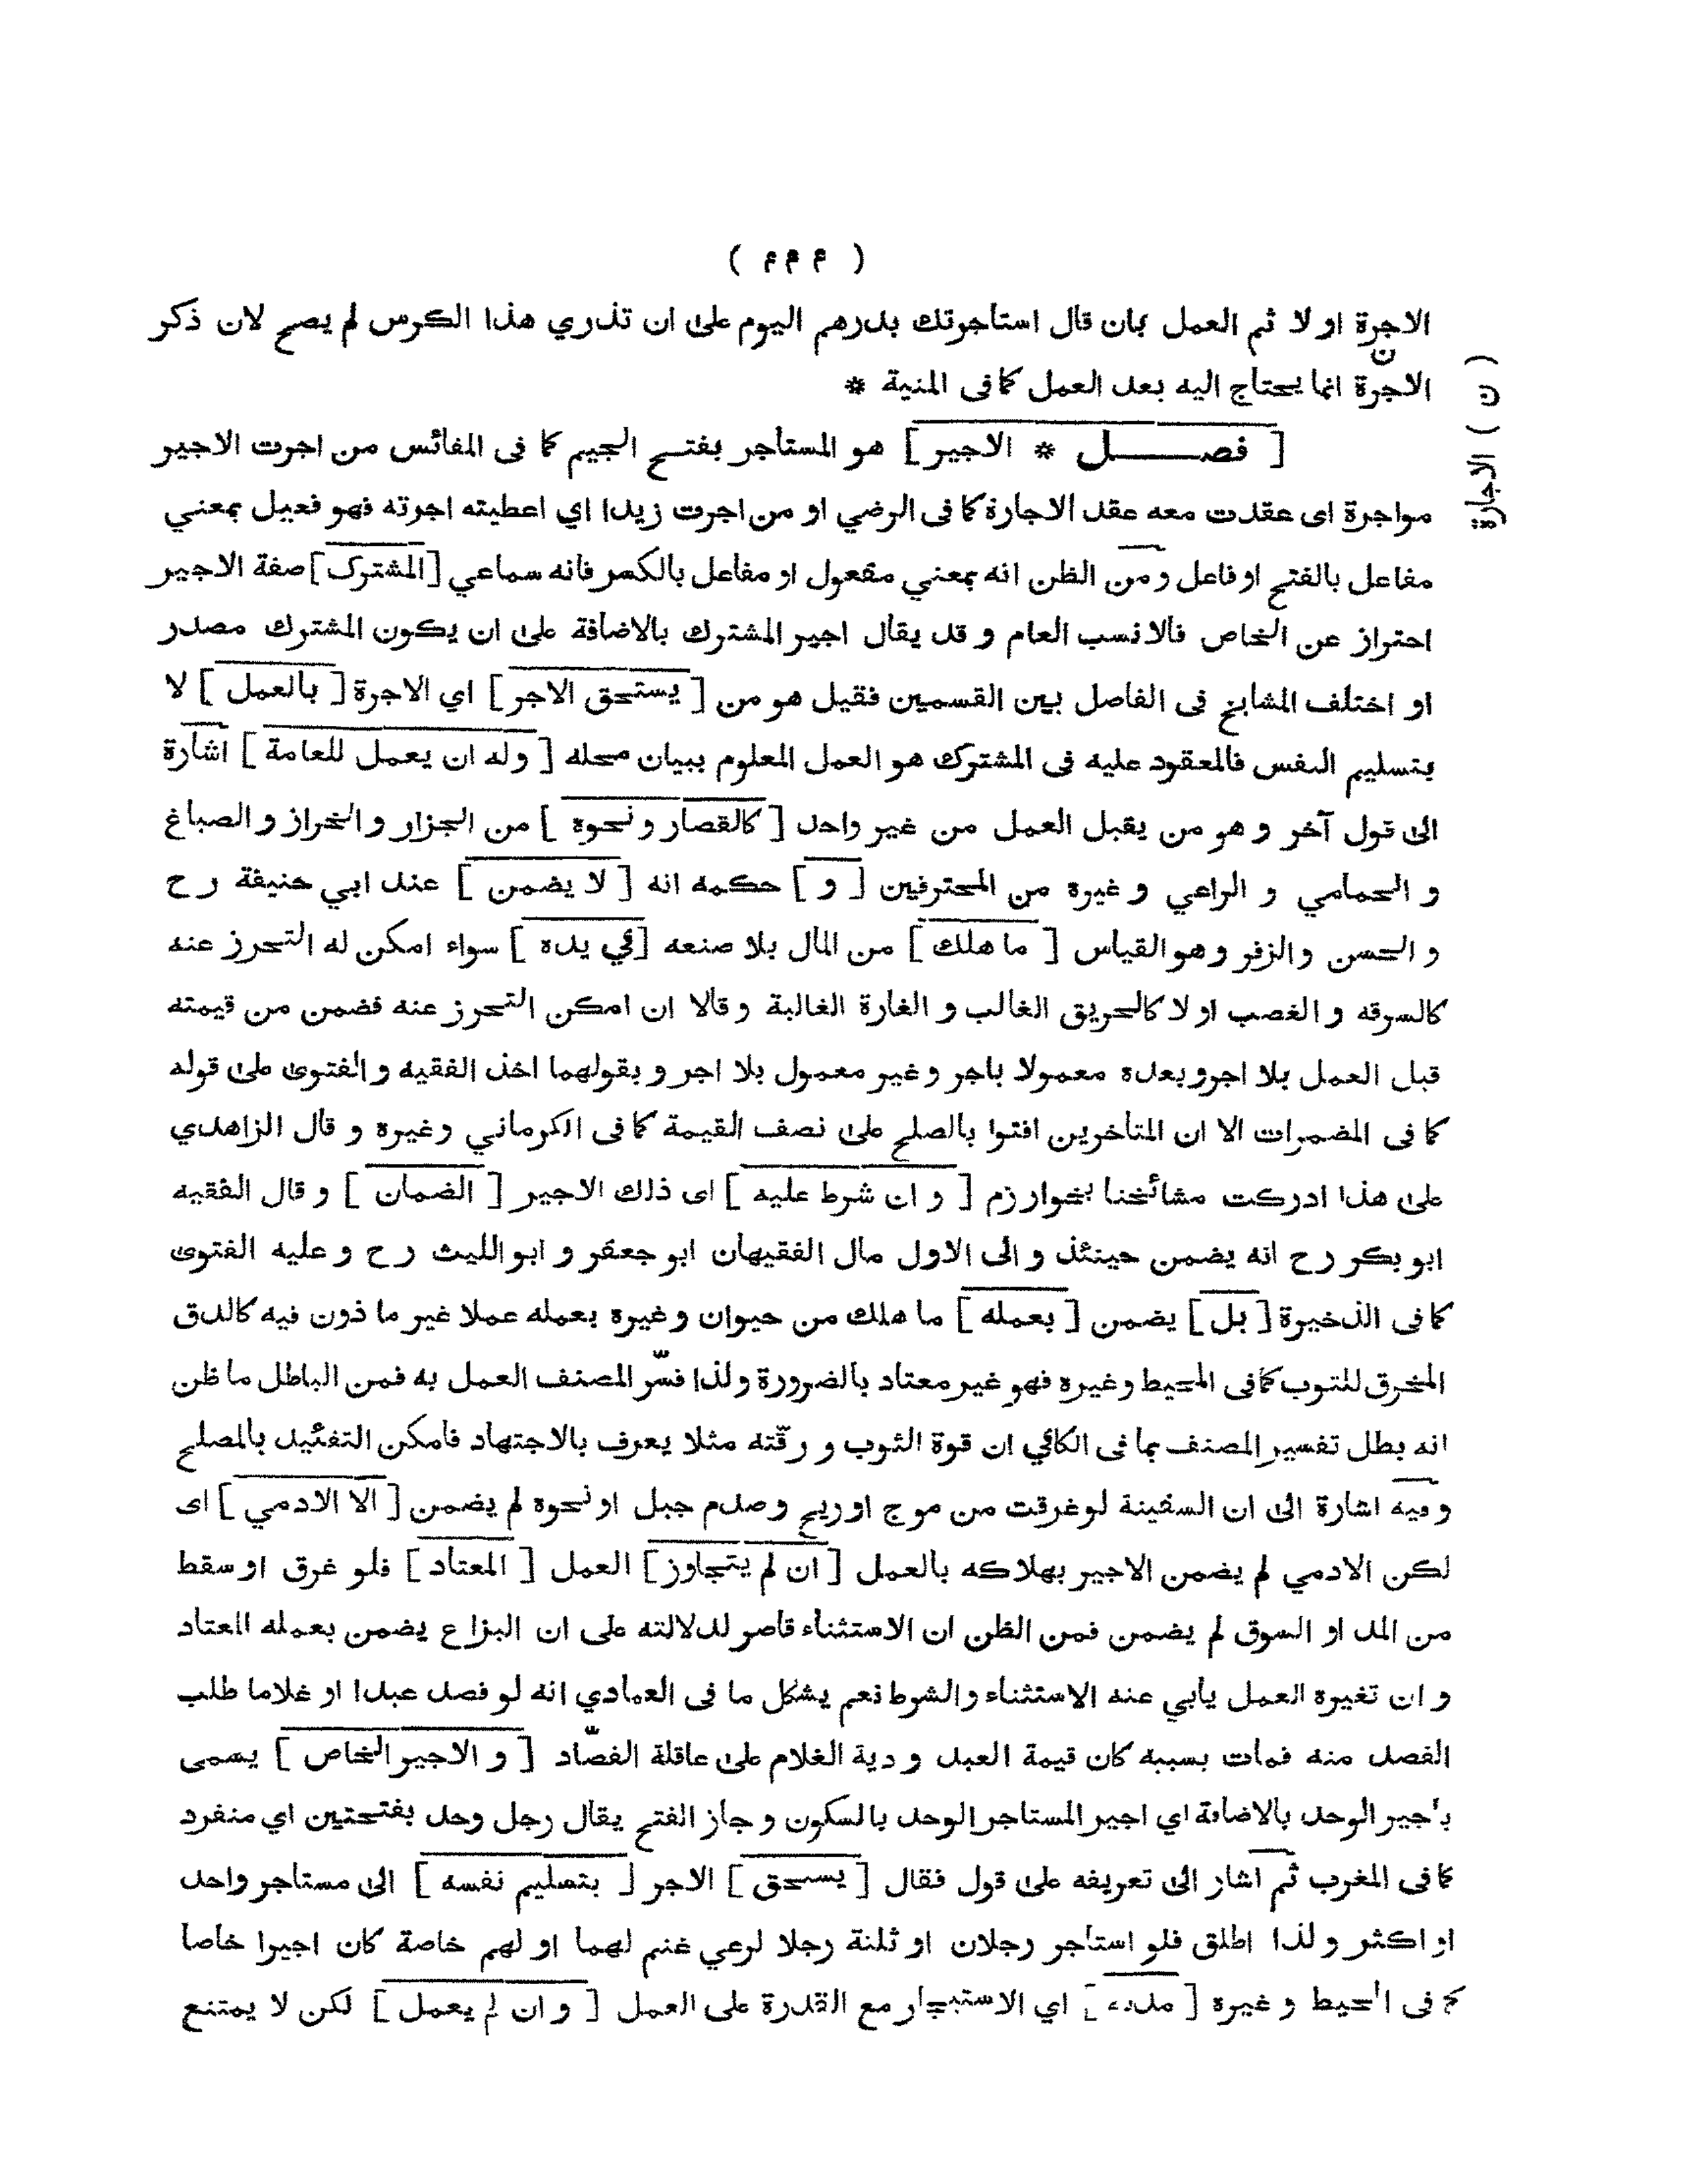 ( ۴۴۴ )
الاجرة او لا ثم العمل بان قال استاجرتك بدرهم اليوم على ان تذري هذا الكرس لم يصح لان ذكر
الاجرة انما يحتاج اليه بعد العمل كما فى المنية *
( ن ) الاجارة
[ فصــــل * الاجير ] هو المستأجر بفتح الجيم كما فى المفائس من اجرت الاجير
مواجرة اى عقدت معه عقد الاجارة كما فى الرضي او من اجرت زيدا اي اعطيته اجرته فهو فعيل بمعني
مفاعل بالفتح او فاعل و من الظن انه بمعني مفعول او مفاعل بالكسر فانه سماعي [ المشترك ] صفة الاجير
احتراز عن الخاص فالانسب العام و قد يقال اجير المشترك بالاضافة على ان يكون المشترك مصدر
او اختلف المشايخ فى الفاصل بين القسمين فقيل هو من [ يستحق الاجر ] اي الاجرة [ بالعمل ] لا
بتسليم النفس فالمعقود عليه فى المشترك هو العمل المعلوم ببيان محله [ وله ان يعمل للعامة ] اشارة
الى قول آخر و هو من يقبل العمل من غير واحد [ كالقصار و نحوه ] من الجزار و الخراز و الصباغ
و الحمامي و الراعي و غيره من المحترفين [ و ] حكمه انه [ لا يضمن ] عند ابي حنيفة ر ح
و الحسن و الزفر و هو القياس [ ما هلك ] من المال بلا صنعه [ في يده ] سواء امكن له التحرز عنه
كالسرقه و الغصب او لا كالحريق الغالب و الغارة الغالبة و قالا ان امكن التحرز عنه فضمن من قيمته
قبل العمل بلا اجر و بعده معمولا باجر و غير معمول بلا اجر و بقولهما اخذ الفقيه و الفتوى على قوله
كما فى المضمرات الا ان المتأخرين افتوا بالصلح على نصف القيمة كما فى الكرماني و غيره و قال الزاهدي
على هذا ادركت مشائخنا بخوارزم [ و ان شرط عليه ] اى ذلك الاجير [ الضمان ] و قال الفقيه
ابو بكر ر ح انه يضمن حينئذ و الى الاول مال الفقيهان ابو جعفر و ابو الليث ر ح و عليه الفتوى
كما فى الذخيرة [ بل ] يضمن [ بعمله ] ما هلك من حيوان و غيره بعمله عملا غير ما ذون فيه كالدق
المخرق للثوب كما فى المحيط و غيره فهو غير معتاد بالضرورة و لذا فسّر المصنف العمل به فمن الباطل ما ظن
انه بطل تفسير المصنف بما فى الكافي ان قوة الثوب و رقّته مثلا يعرف بالاجتهاد فامكن التقئيد بالمصلح
و فيه اشارة الى ان السفينة لو غرقت من موج او ريح و صدم جبل او نحوه لم يضمن [ الا الادمي ] اى
لكن الادمي لم يضمن الاجير بهلاكه بالعمل [ ان لم يتجاوز ] العمل [ المعتاد ] فلو غرق او سقط
من المد او السوق لم يضمن فمن الظن ان الاستثناء قاصر لدلالته على ان البزاغ يضمن بعمله المعتاد
و ان تغيره العمل يأبي عنه الاستثناء و الشرط نعم يشكل ما فى العمادي انه لو فصد عبدا او غلاما طلب
الفصد منه فمات بسببه كان قيمة العبد و دية الغلام على عاقلة الفصّاد [ و الاجير الخاص ] يسمى
بأجير الوحد بالاضافة اي اجير المستاجر الوحد بالسكون و جاز الفتح يقال رجل وحد بفتحتين اي منفرد
كما فى المغرب ثم اشار الى تعريفه على قول فقال [ يستحق ] الاجر [ بتسليم نفسه ] الى مستاجر واحد
او اكثر و لذا اطلق فلو استاجر رجلان او ثلثة رجلا لرعي غنم لهما او لهم خاصة كان اجيرا خاصا
كما فى المحيط و غيره [ مدته ] اي الاستيجار مع القدرة على العمل [ و ان لم يعمل ] لكن لا يمتنع